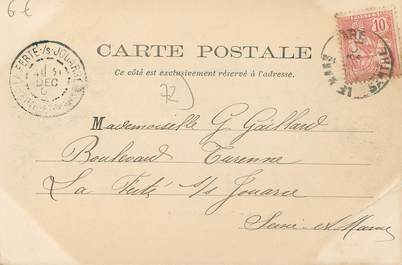 6 €
LA FERTÉ-S/S-JOUARRE
DEC
10
LE MANS
SARTHE
CARTE POSTALE
Ce côté est exclusivement réservé à l'adresse.
72
Mademoiselle G. Gaillard
Boulevard Turenne
La Ferté s/s Jouarre
Seine et Marne